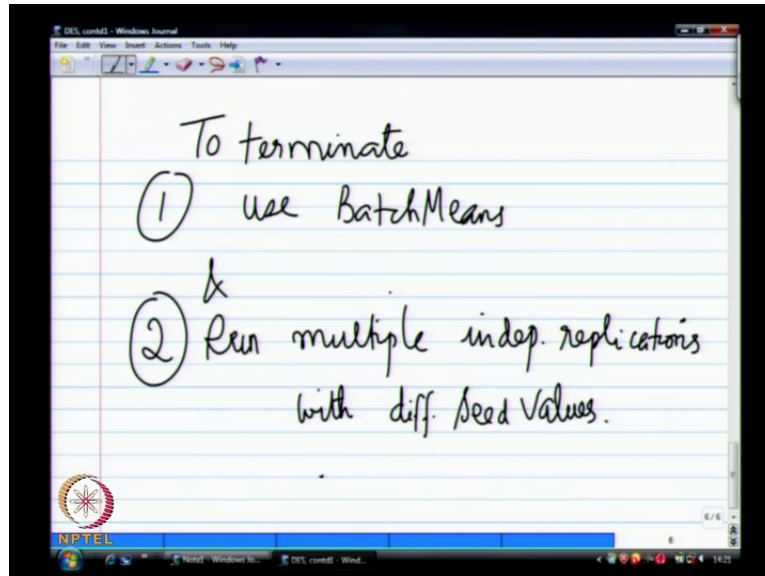 DES, contd1 - Windows Journal
File Edit View Insert Actions Tools Help
To terminate
1 use BatchMeans
&
2 Run multiple indep. replications
with diff. seed values.
6/6
6
NPTEL
Note1 - Windows Jo...
DES, contd1 - Wind...
14:21